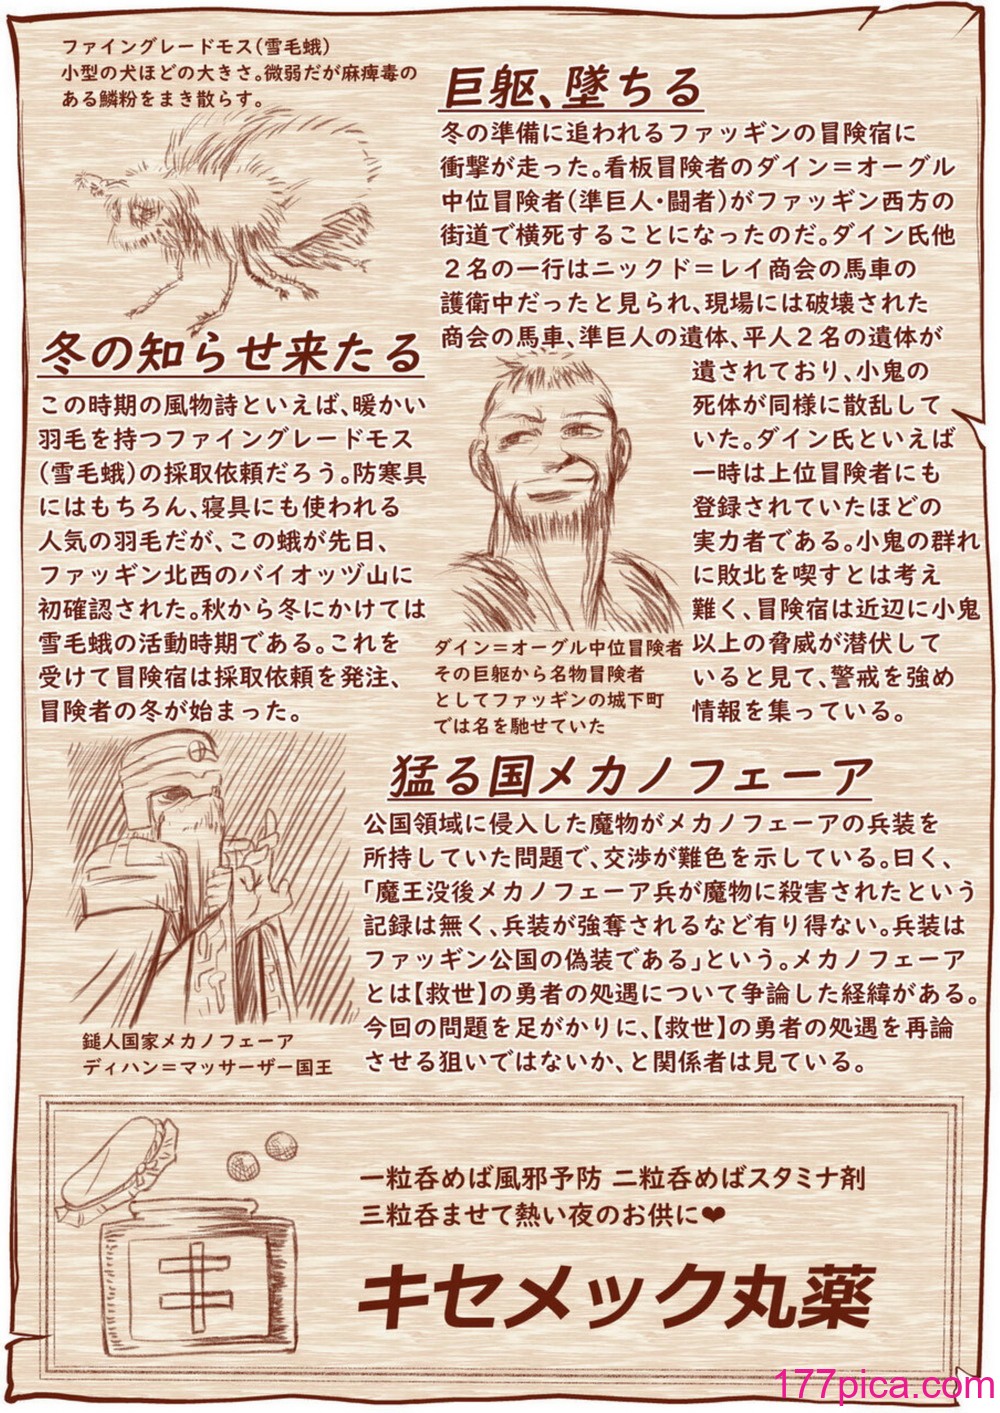 ファイングレードモス(雪毛蛾)
小型の犬ほどの大きさ。微弱だが麻痺毒の
ある鱗粉をまき散らす。
巨躯、墜ちる
冬の準備に追われるファッギンの冒険宿に
衝撃が走った。看板冒険者のダイン＝オーグル
中位冒険者(準巨人・闘者)がファッギン西方の
街道で横死することになったのだ。ダイン氏他
２名の一行はニックド＝レイ商会の馬車の
護衛中だったと見られ、現場には破壊された
商会の馬車、準巨人の遺体、平人２名の遺体が
遺されており、小鬼の
死体が同様に散乱して
いた。ダイン氏といえば
一時は上位冒険者にも
登録されていたほどの
実力者である。小鬼の群れ
に敗北を喫すとは考え
難く、冒険宿は近辺に小鬼
以上の脅威が潜伏して
いると見て、警戒を強め
情報を集っている。
ダイン＝オーグル中位冒険者
その巨躯から名物冒険者
としてファッギンの城下町
では名を馳せていた
冬の知らせ来たる
この時期の風物詩といえば、暖かい
羽毛を持つファイングレードモス
(雪毛蛾)の採取依頼だろう。防寒具
にはもちろん、寝具にも使われる
人気の羽毛だが、この蛾が先日、
ファッギン北西のバイオッヅ山に
初確認された。秋から冬にかけては
雪毛蛾の活動時期である。これを
受けて冒険宿は採取依頼を発注、
冒険者の冬が始まった。
猛る国メカノフェーア
公国領域に侵入した魔物がメカノフェーアの兵装を
所持していた問題で、交渉が難色を示している。曰く、
「魔王没後メカノフェーア兵が魔物に殺害されたという
記録は無く、兵装が強奪されるなど有り得ない。兵装は
ファッギン公国の偽装である」という。メカノフェーア
とは【救世】の勇者の処遇について争論した経緯がある。
今回の問題を足がかりに、【救世】の勇者の処遇を再論
させる狙いではないか、と関係者は見ている。
鎚人国家メカノフェーア
ディハン＝マッサーザー国王
一粒呑めば風邪予防 二粒呑めばスタミナ剤
三粒呑ませて熱い夜のお供に❤
キセメック丸薬
177pica.com